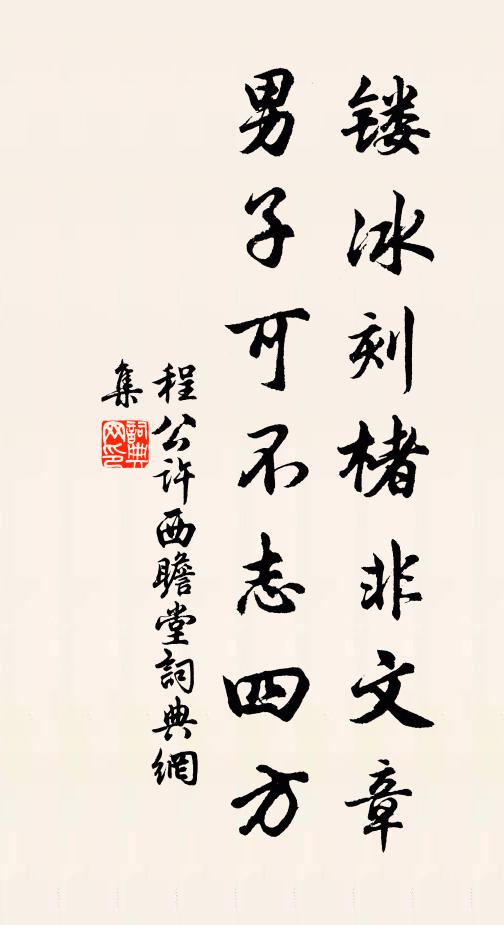 镂冰刻楮非文章
男子可不志四方
程公许西瞻堂詞典網
集
詞典
网印